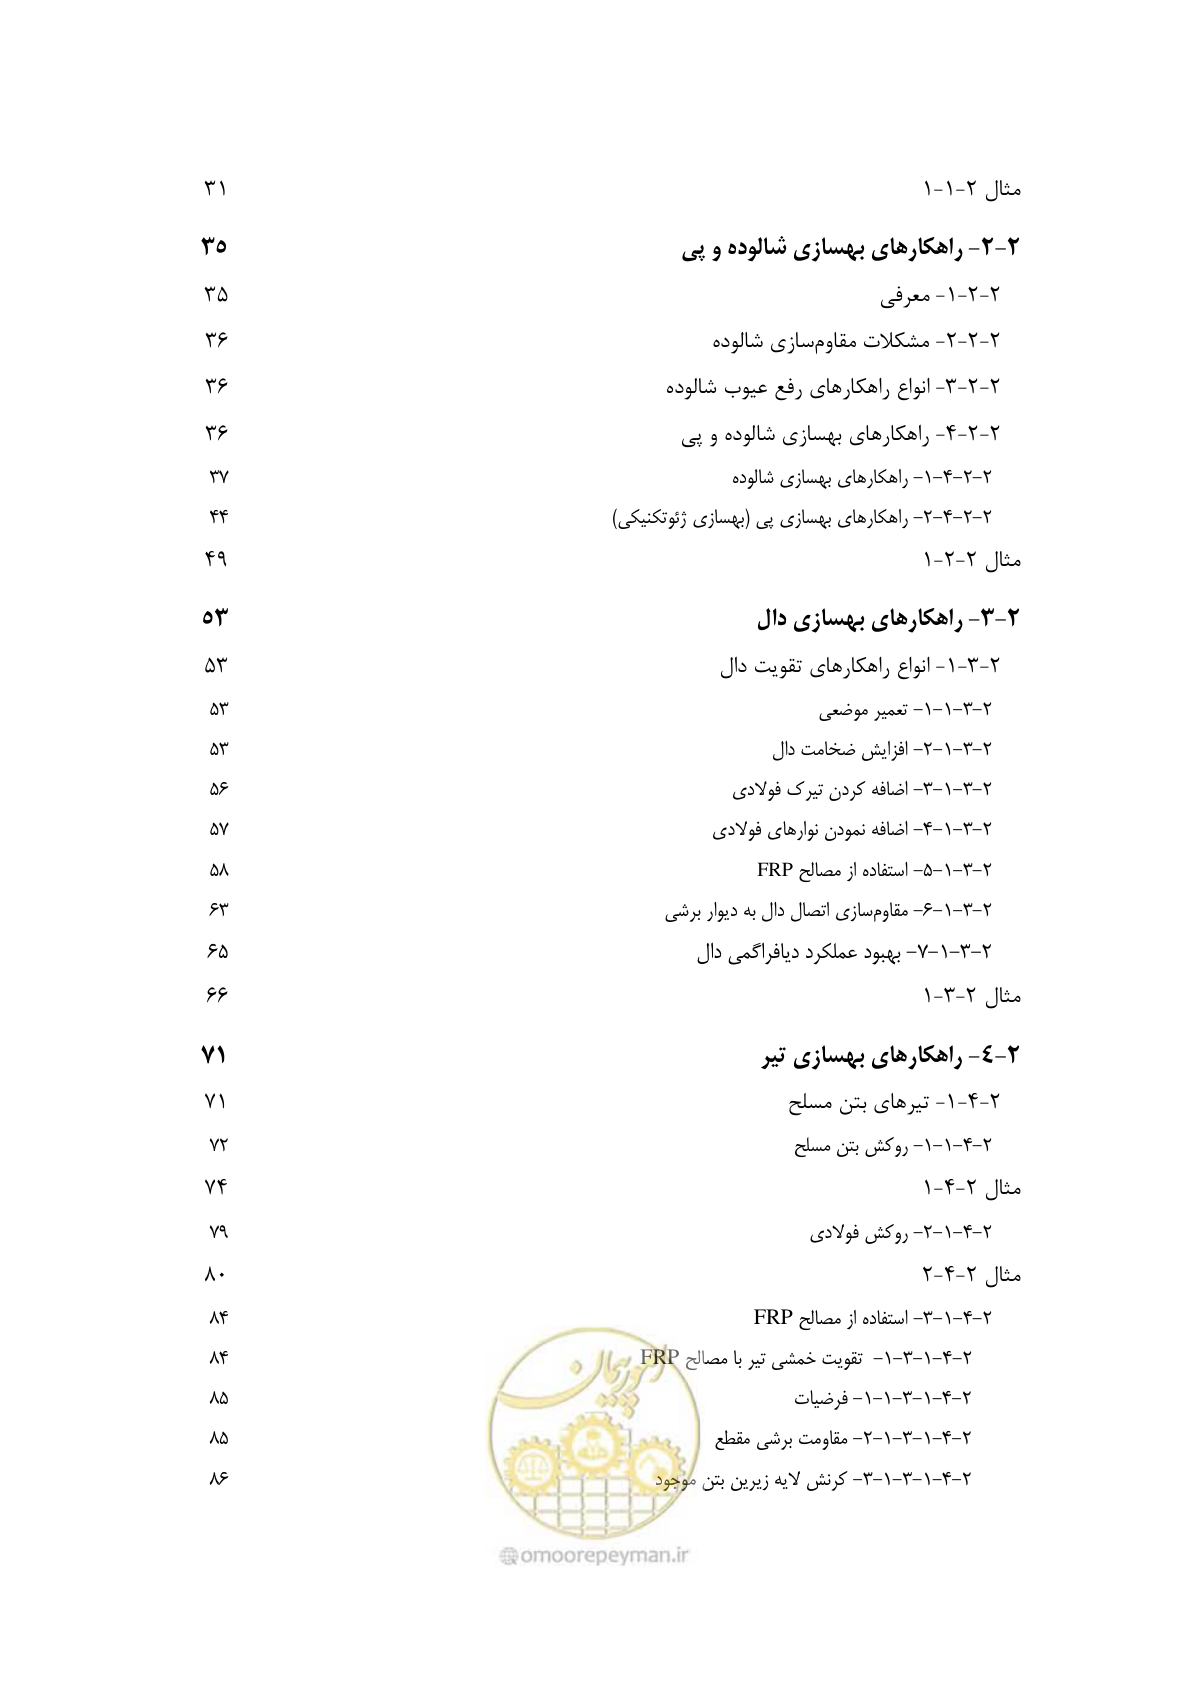 مثال ۲-۱-۱ ۳۱
۲-۲- راهکارهای بهسازی شالوده و پی ۳۵
۲-۲-۱- معرفی ۳۵
۲-۲-۲- مشکلات مقاوم‌سازی شالوده ۳۶
۲-۲-۳- انواع راهکارهای رفع عیوب شالوده ۳۶
۲-۲-۴- راهکارهای بهسازی شالوده و پی ۳۶
۲-۲-۴-۱- راهکارهای بهسازی شالوده ۳۷
۲-۲-۴-۲- راهکارهای بهسازی پی (بهسازی ژئوتکنیکی) ۴۴
مثال ۲-۲-۱ ۴۹
۲-۳- راهکارهای بهسازی دال ۵۳
۲-۳-۱- انواع راهکارهای تقویت دال ۵۳
۲-۳-۱-۱- تعمیر موضعی ۵۳
۲-۳-۱-۲- افزایش ضخامت دال ۵۳
۲-۳-۱-۳- اضافه کردن تیرک فولادی ۵۶
۲-۳-۱-۴- اضافه نمودن نوارهای فولادی ۵۷
۲-۳-۱-۵- استفاده از مصالح FRP ۵۸
۲-۳-۱-۶- مقاوم‌سازی اتصال دال به دیوار برشی ۶۳
۲-۳-۱-۷- بهبود عملکرد دیافراگمی دال ۶۵
مثال ۲-۳-۱ ۶۶
۲-٤- راهکارهای بهسازی تیر ۷۱
۲-۴-۱- تیرهای بتن مسلح ۷۱
۲-۴-۱-۱- روکش بتن مسلح ۷۲
مثال ۲-۴-۱ ۷۴
۲-۴-۱-۲- روکش فولادی ۷۹
مثال ۲-۴-۲ ۸۰
۲-۴-۱-۳- استفاده از مصالح FRP ۸۴
۲-۴-۱-۳-۱- تقویت خمشی تیر با مصالح FRP ۸۴
۲-۴-۱-۳-۱-۱- فرضیات ۸۵
۲-۴-۱-۳-۱-۲- مقاومت برشی مقطع ۸۵
۲-۴-۱-۳-۱-۳- کرنش لایه زیرین بتن موجود ۸۶
امور پیمان
@omoorepeyman.ir